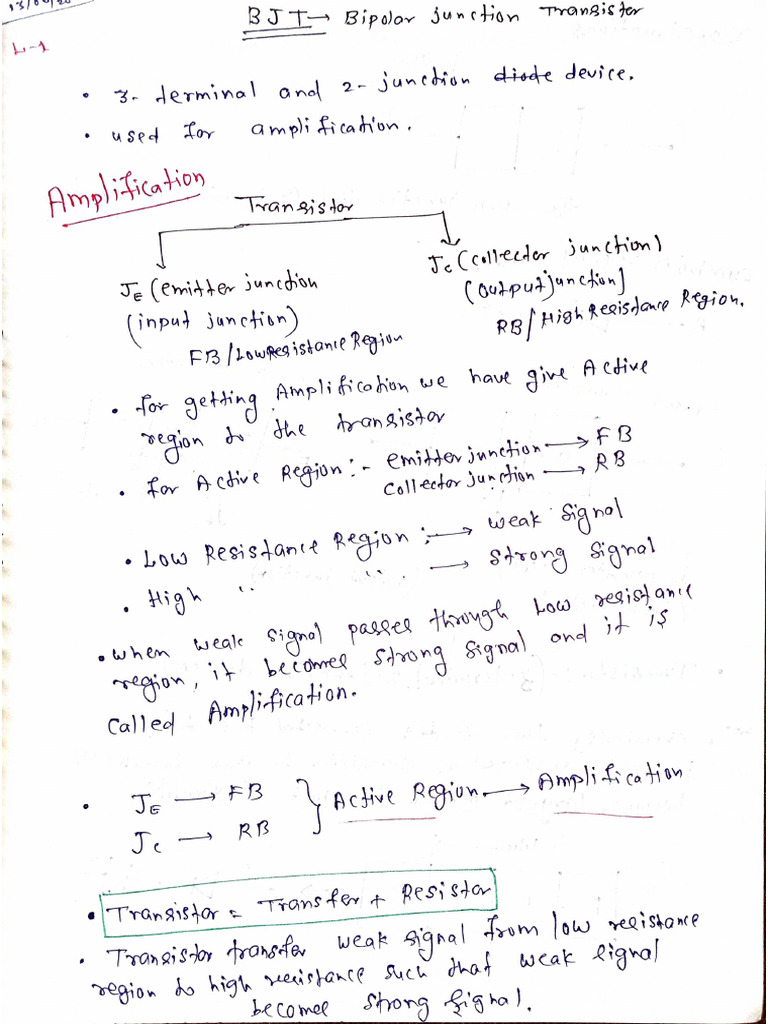 13/04/20
L-1
BJT → Bipolar junction Transistor
• 3- terminal and 2- junction diode device.
• used for amplification.
Amplification
Transistor
JE (emitter junction
(input junction)
FB/Low Resistance Region
JC (collector junction)
(output junction]
RB/High Resistance Region.
• for getting Amplification we have give Active
region to the transistor
• for Active Region :- emitter junction → FB
collector junction → RB
• Low Resistance Region :→ weak signal
• High " " . → strong signal
• when weak signal passes through low resistance
region, it becomes strong signal and it is
called Amplification.
• JE → FB } Active Region → Amplification
JC → RB
• Transistor = Transfer + Resistor
• Transistor transfer weak signal from low resistance
region to high resistance such that weak signal
becomes strong signal.